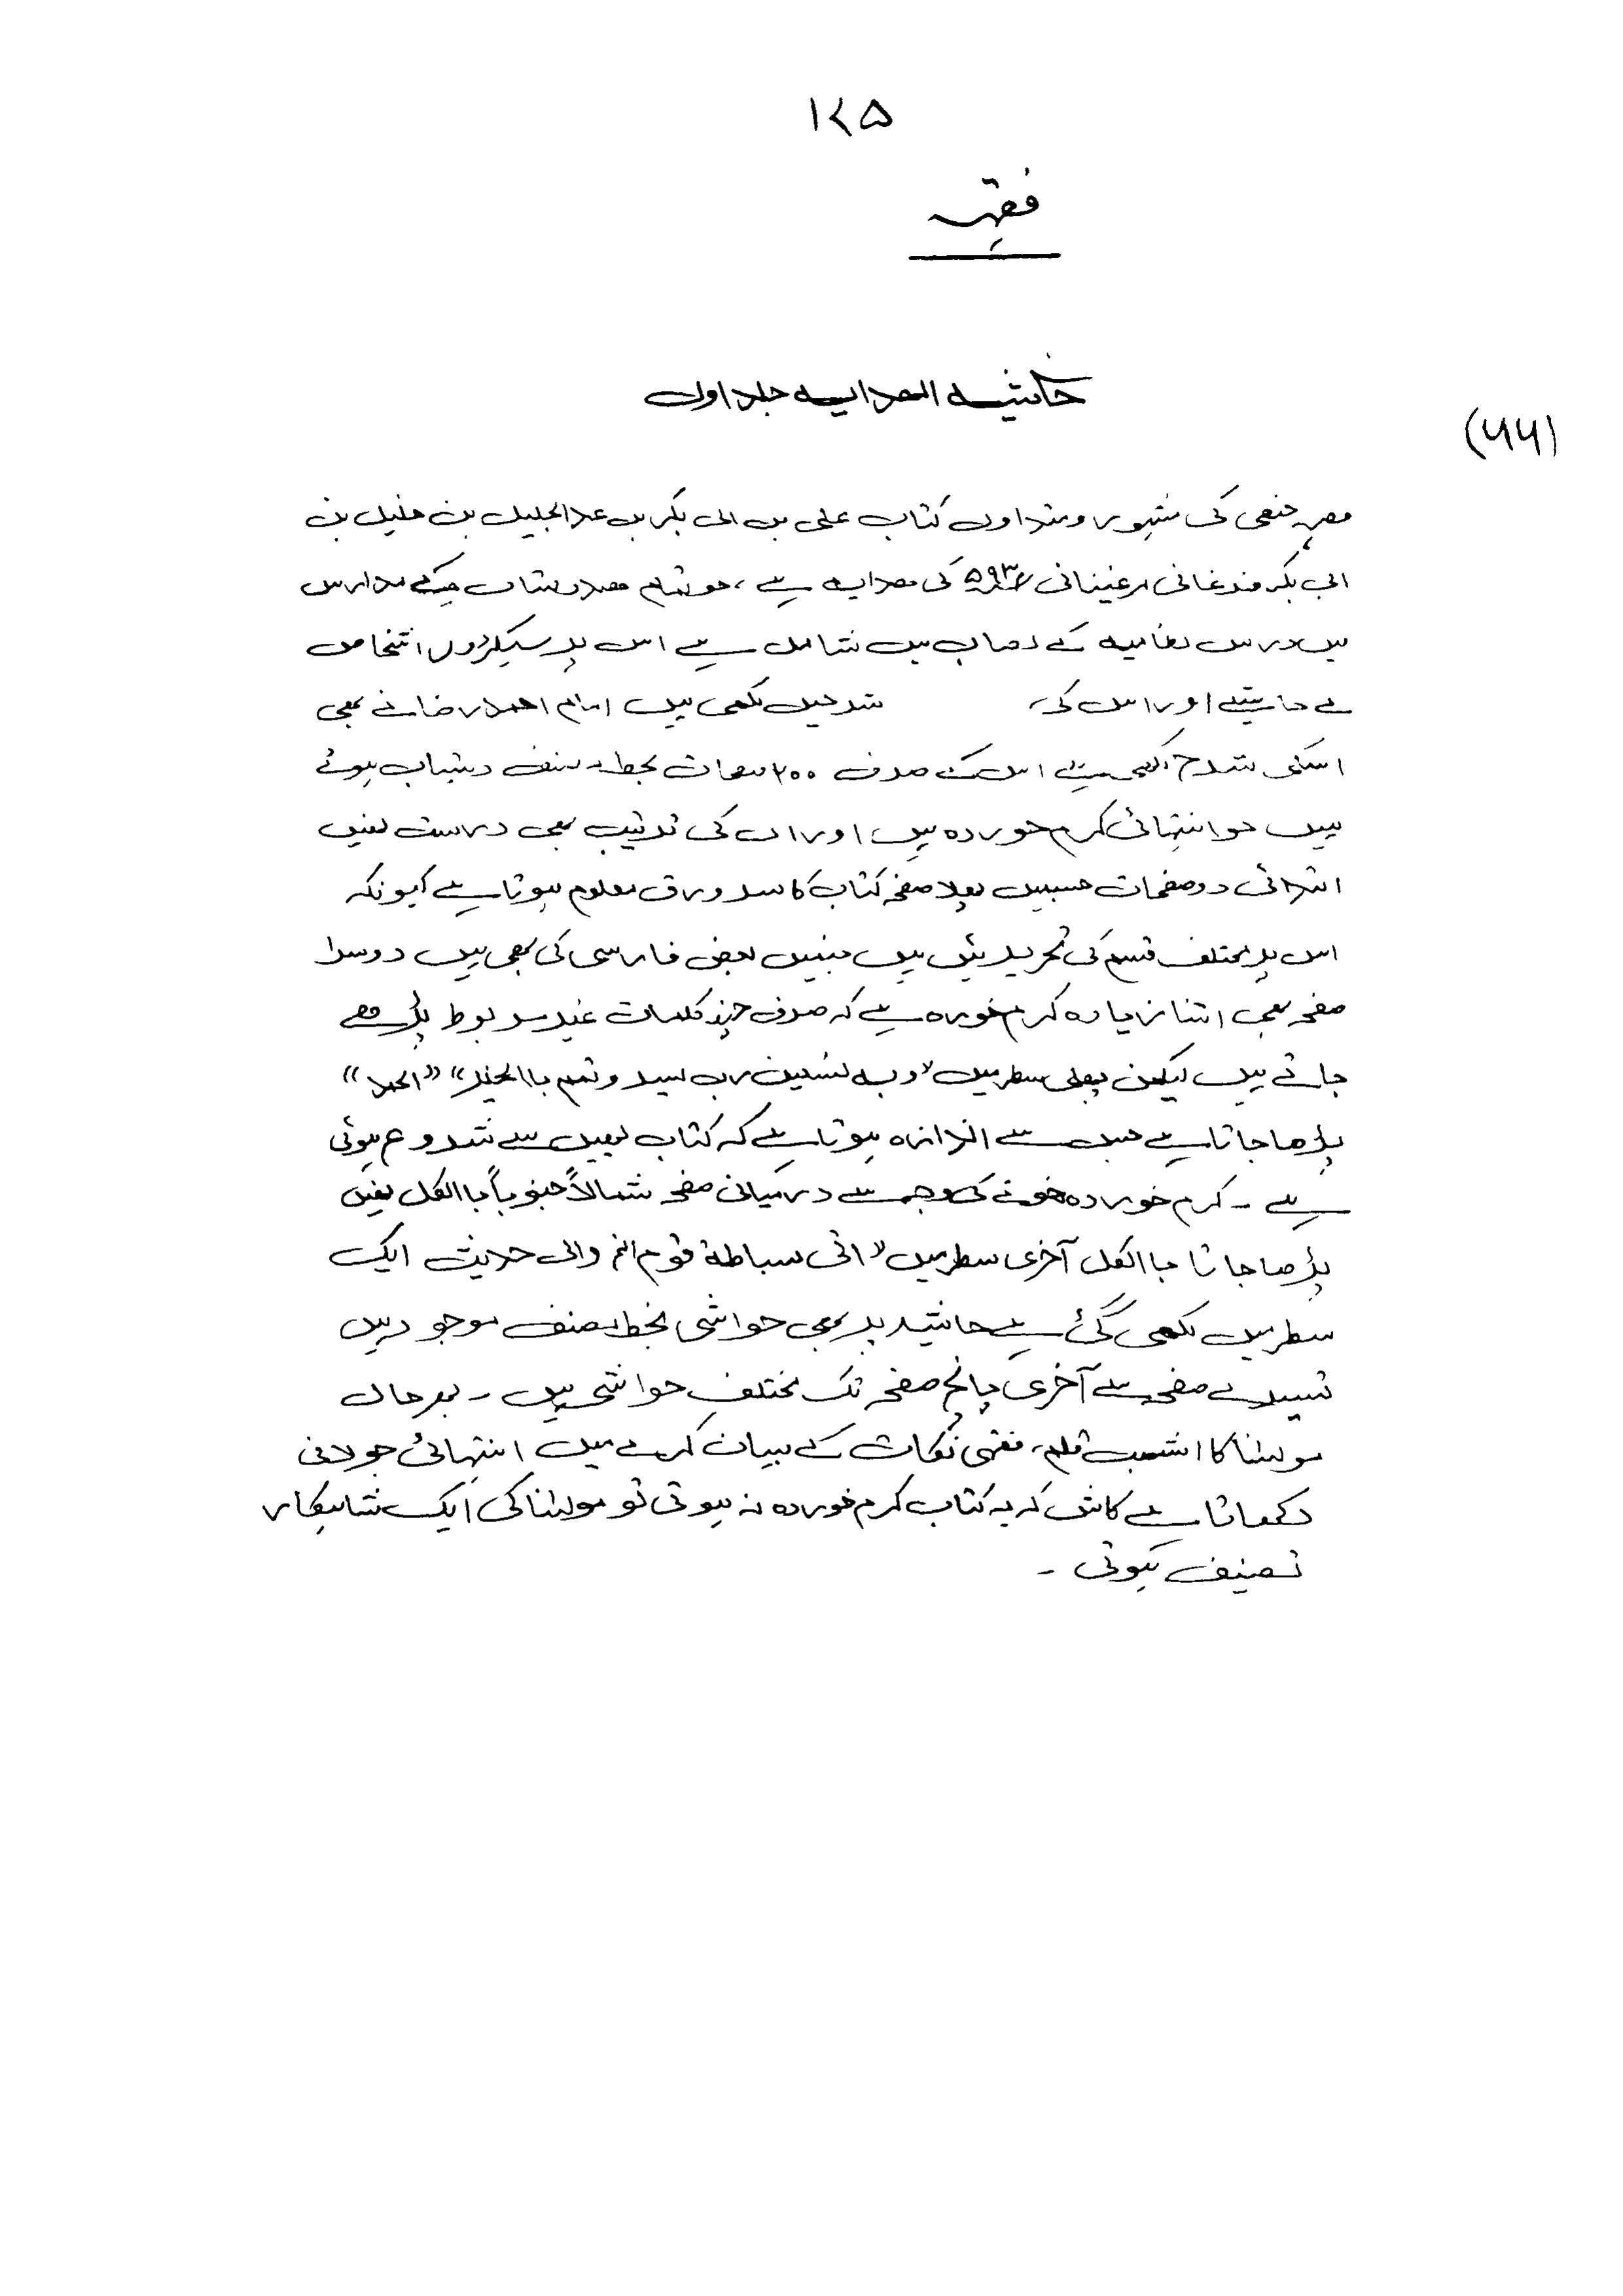 ۱۲۵
فقہ
حاشیہ الھدایہ جلد اول
(۶۶)
فقہ حنفی کی مشہور و متداول کتاب علی بن ابی بکر بن عبدالجلیل بن خلیل بن
ابی بکر فرغانی مرغینانی ۵۹۳ھ کی ھدایہ ہے، جو تمام ھندوستان کے مدارس
میں درس نظامیہ کے نصاب میں شامل ہے اس پر سیکڑوں اشخاص
نے حاشیے اور اس کی شرحیں لکھی ہیں امام احمد رضا نے بھی
اسکی شرح لکھی ہے اس کے صرف ۲۰۰ صفحات بخط مصنف دستیاب ہوئے
ہیں جو انتہائی کرم خوردہ ہیں اور ان کی ترتیب بھی درست نہیں
ابتدائی دو صفحات جسمیں پہلا صفحہ کتاب کا سرورق معلوم ہوتا ہے کیونکہ
اس پر مختلف قسم کی تحریریں ہیں جنمیں بعض فارسی کی بھی ہیں دوسرا
صفحہ بھی اتنا زیادہ کرم خوردہ ہے کہ صرف چند کلمات غیر مربوط پڑھے
جاتے ہیں لیکن پہلی سطر میں "وبہ نستعین رب یسر و تمم با الخیر" "الحمد"
پڑھا جاتا ہے جس سے اندازہ ہوتا ہے کہ کتاب یہیں سے شروع ہوئی
ہے ۔ کرم خوردہ ھونے کی وجہ سے درمیانی صفحہ شمالاً جنوباً با الکل نہیں
پڑھا جاتا با الکل آخری سطر میں "اتی سباطة قوم الخ والی حدیث ایک
سطر میں لکھی گئی ہے حاشیہ پر بھی حواشی بخط مصنف موجود ہیں
تیسرے صفحہ سے آخری پانچ صفحہ تک مختلف حواشی ہیں ۔ بہر حال
مولٰنا کا اشہب قلم، فقہی نکات کے بیان کرنے میں انتہائی جولانی
دکھاتا ہے کاش کہ یہ کتاب کرم خوردہ نہ ہوتی تو مولٰنا کی ایک شاہکار
تصنیف ہوتی ۔